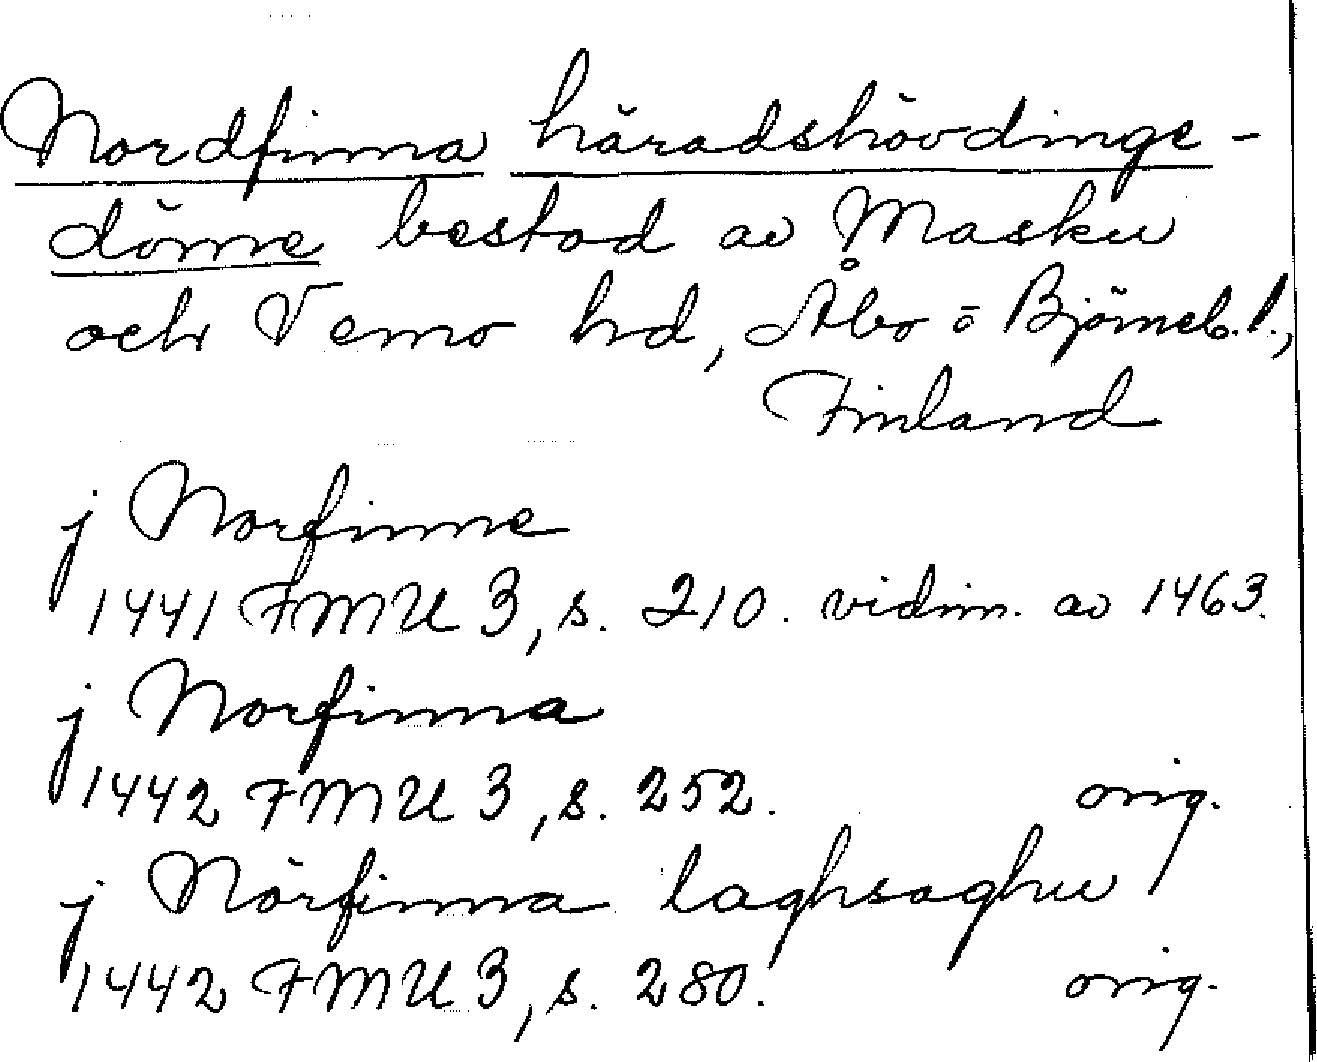 Nordfinna häradshövdinge-
döme bestod av Masku
och Vemo hd, Åbo o Björneb. l.,
Finland
j Norfinne
1441 FMU 3, s. 210. vidim. av 1463.
j Norfinna
1442 FMU 3, s. 252. orig.
j Nörfinna laghsaghu
1442 FMU 3, s. 280. orig.